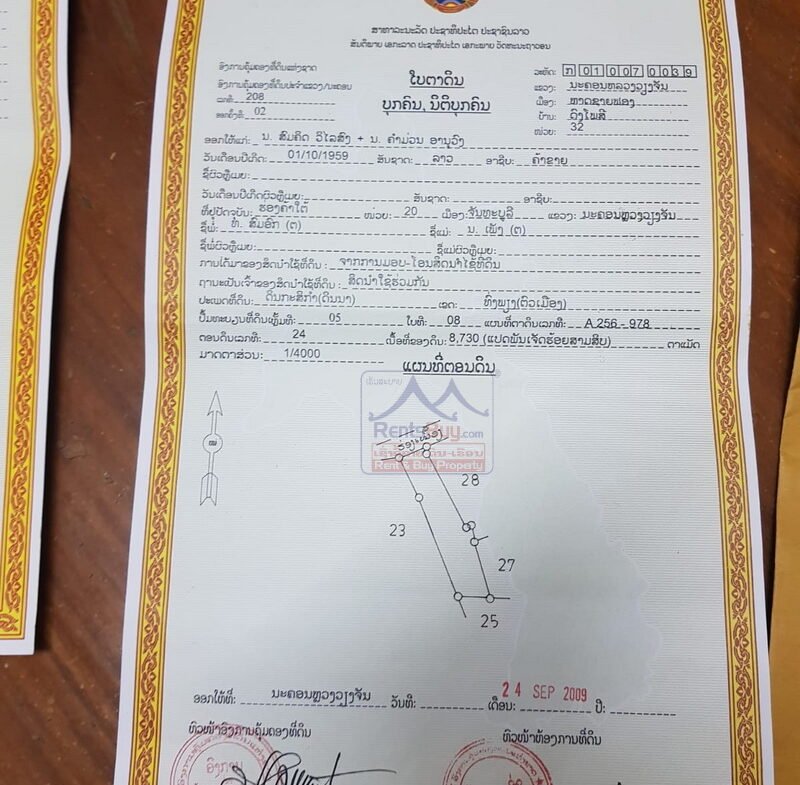 ສາທາລະນະລັດ ປະຊາທິປະໄຕ ປະຊາຊົນລາວ
ສັນຕິພາບ ເອກະລາດ ປະຊາທິປະໄຕ ເອກະພາບ ວັດທະນະຖາວອນ
ອົງການຄຸ້ມຄອງທີ່ດິນແຫ່ງຊາດ
ອົງການຄຸ້ມຄອງທີ່ດິນປະຈຳແຂວງ/ນະຄອນ
ເລກທີ: 208
ອອກຄັ້ງທີ: 02
ໃບຕາດິນ
ບຸກຄົນ, ນິຕິບຸກຄົນ
ລະຫັດ: ກ 01 007 0039
ແຂວງ: ນະຄອນຫລວງວຽງຈັນ
ເມືອງ: ຫາດຊາຍຟອງ
ບ້ານ: ດົງໂພສີ
ໜ່ວຍ: 32
ອອກໃຫ້ແກ່: ນ. ສົມຄິດ ວິໄລສົງ + ນ. ຄຳມ່ວນ ອານຸວົງ
ວັນເດືອນປີເກີດ: 01/10/1959 ສັນຊາດ: ລາວ ອາຊີບ: ຄ້າຂາຍ
ຊື່ຜົວຫຼືເມຍ:
ວັນເດືອນປີເກີດຜົວຫຼືເມຍ: ສັນຊາດ: ອາຊີບ:
ທີ່ຢູ່ປັດຈຸບັນ: ຮ່ອງຄ້າໃຕ້ ໜ່ວຍ: 20 ເມືອງ: ຈັນທະບູລີ ແຂວງ: ນະຄອນຫຼວງວຽງຈັນ
ຊື່ພໍ່: ທ. ສົມອົກ (ຕ) ຊື່ແມ່: ນ. ເພັງ (ຕ)
ຊື່ພໍ່ຜົວຫຼືເມຍ: ຊື່ແມ່ຜົວຫຼືເມຍ:
ການໄດ້ມາຂອງສິດນຳໃຊ້ທີ່ດິນ: ຈາກການມອບ-ໂອນສິດນຳໃຊ້ທີ່ດິນ
ຖານະເປັນເຈົ້າຂອງສິດນຳໃຊ້ທີ່ດິນ: ສິດນຳໃຊ້ຮ່ວມກັນ
ປະເພດທີ່ດິນ: ດິນກະສິກຳ(ດິນນາ) ເຂດ: ທົ່ງພຽງ(ຕົວເມືອງ)
ປຶ້ມທະບຽນທີ່ດິນເຫຼັ້ມທີ: 05 ໃບທີ: 08 ແຜນທີ່ຕາດິນເລກທີ: A 256 - 978
ຕອນດິນເລກທີ: 24 ເນື້ອທີ່ຂອງດິນ: 8,730 (ແປດພັນເຈັດຮ້ອຍສາມສິບ) ຕາແມັດ
ມາດຕາສ່ວນ: 1/4000
ແຜນທີ່ຕອນດິນ
RentsBuy.com
Rent & Buy Property
ຮ່ອງເໝືອງ
28
23
27
25
ອອກໃຫ້ທີ່: ນະຄອນຫຼວງວຽງຈັນ ວັນທີ: 24 SEP 2009 ເດືອນ: ປີ:
ຫົວໜ້າອົງການຄຸ້ມຄອງທີ່ດິນ
ຫົວໜ້າຫ້ອງການທີ່ດິນ